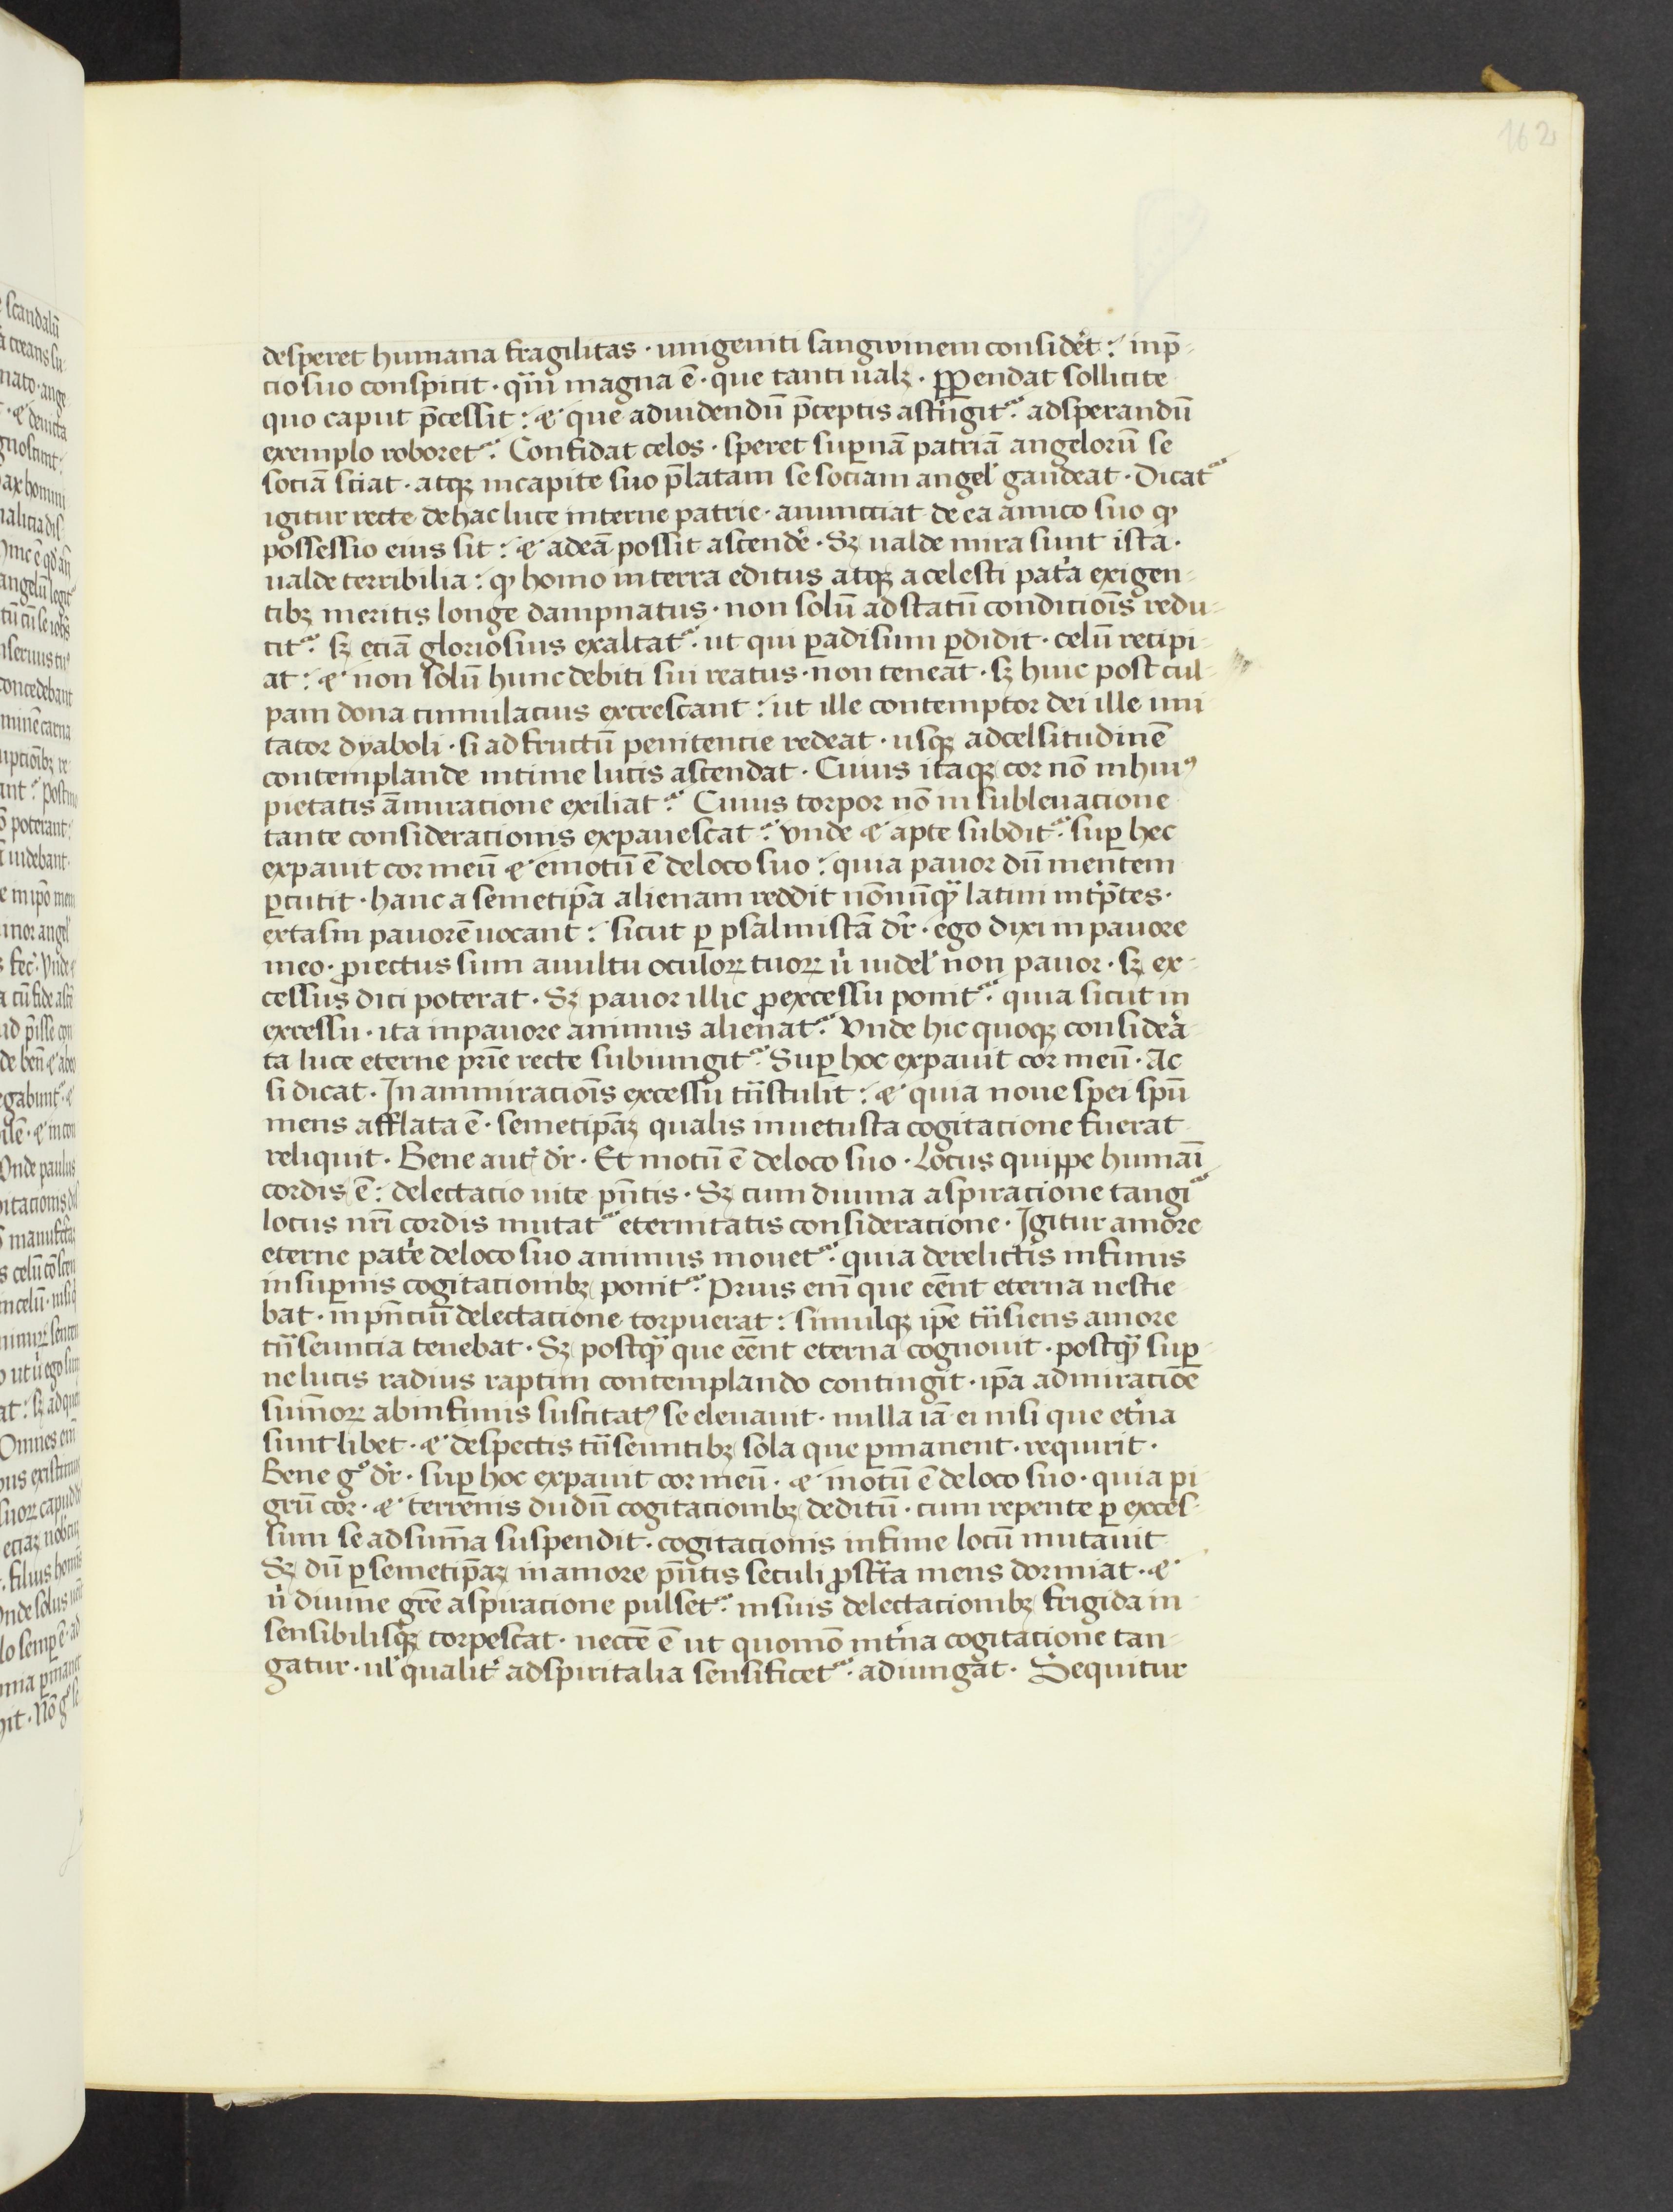 162
desperet humana fragilitas · unigeniti sangwinem considēt : inp̄-
cio suo conspicit · qͣm magna ē · que tanti ualꝫ · ꝑpendat sollicite
quo caput p̄cessit : & que ad uidendū p̄ceptis astͥngit᷑ · ad sperandū
exemplo roboret᷑ · Confidat celos · speret suꝑnā patriā angelorū se
sociā sciat · atqꝫ in capite suo p̄latam se sociam angel̕ gaudeat · Dicat᷑
igitur recte de hac luce interne patrie · anunctiat de ea amico suo ꝙ
possessio eius sit : & ad eā possit ascendē · Sꝫ ualde mira sunt ista ·
ualde terribilia : ꝙ homo in terra editus atqꝫ a celesti patͥa exigen-
tibꝫ meritis longe dampnatus · non solū ad statū condicioīs redu-
cit᷑ · sꝫ eciā gloriosius exaltat᷑ · ut qui ꝑadisum ꝑdidit · celū recipi-
at : & non solū hunc debiti sui reatus · non teneat · sꝫ huic post cul-
pam dona cumulacius excrescant : ut ille contemptor dei ille imi
tator dyaboli · si ad fructū penitencie redeat · usqꝫ ad celsitudinē
contemplande intime lucis ascendat · Cuius itaqꝫ cor nō in huiꝰ
pietatis āmiracione exiliat᷑ · Cuius torpor nō in subleuacione
tante consideracionis expauescat᷑ · Vnde & apte subdit᷑ · suꝑ hec
expauit cor meū & emotū ē de loco suo : quia pauor dū mentem
ꝑcutit · hanc a semetip̄a alienam reddit nōnūqͣ latini intͥp̄tes ·
extasin pauorē uocant : sicut ꝑ psalmistā dr̄ · ego dixi in pauore
meo · ꝓiectus sum a uultu oculoꝝ tuoꝝ ū uidel̕ non pauor · sꝫ ex-
cessus dici poterat · Sꝫ pauor illic ꝓ excessu ponit᷑ · quia sicut in
excessu · ita in pauore animus alienat᷑ · Vnde hic quoqꝫ consideͣ
ta luce eterne pͥe recte subiungit᷑ · Suꝑ hoc expauit cor meū · Ac
si dicat · In ammiracioīs excessū tͣstulit : & quia noue spei spū
mens afflata ē · semetip̄aꝫ qualis in uetusta cogitacione fuerat
reliquit · Bene aut̄ dr̄ · Et motū ē de loco suo · Locus quippe humāi
cordis ē : delectacio uite pn̄tis · Sꝫ cum diuina aspiracione tangi᷑
locus nr̄i cordis mutat᷑ eternitatis consideracione · Igitur amore
eterne patͥe de loco suo animus mouet᷑ · quia derelictis infimis
in suꝑnis cogitacionibꝫ ponit᷑ · Prius eni̅ que eēnt eterna nescie
bat · in pn̄ciū delectacione torpuerat : simulqꝫ ip̄e tͣnsiens amore
tͣnseuncia tenebat · Sꝫ postqͣ que eēnt eterna cognouit · postqͣ suꝑ-
ne lucis radius raptim contemplando contingit · ip̄a admiraciōe
sum̄oꝝ ab infimis suscitatꝰ se eleuauit · nulla iā ei nisi que et̄na
sunt libet · & despectis tͣnseuntibꝫ sola que ꝑmanent · requirit ·
Bene gͦ dr̄ · suꝑ hoc expauit cor meū · & motū ē de loco suo · quia pi
grū cor · & terrenis dudū cogitacionibꝫ deditū · cum repente ꝑ exces-
sum se ad sum̄a suspendit · cogitacionis infime locū mutauit
Sꝫ dū ꝑ semetip̄aꝫ in amore pn̄tis seculi ꝓstͣta mens dormiat · &
ū diuine gr̄e aspiracione pulset᷑ · in suis delectacionibꝫ frigida in
sensibilisqꝫ torpescat · necc̄e ē ut quomō int̄na cogitacione tan-
gatur · ul̕ qualit̄ ad spiritalia sensificet᷑ · adiungat · Sequitur